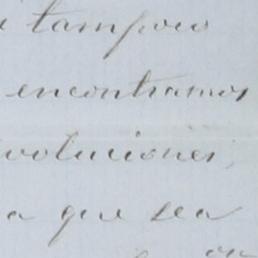 i tampoco
encontramos
voluciones,
a que sea
on